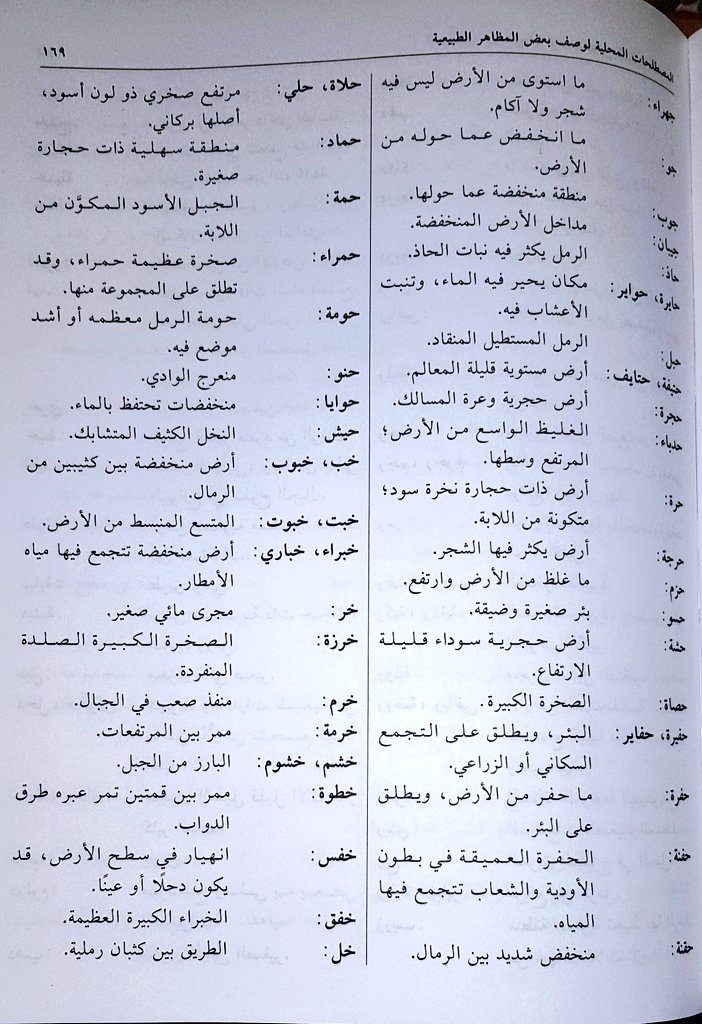 المصطلحات المحلية لوصف بعض المظاهر الطبيعية
١٦٩
جهراء: ما استوى من الأرض ليس فيه
شجر ولا آكام.
جو: ما انخفض عما حوله من
الأرض.
جوب: منطقة منخفضة عما حولها.
جيبان: مداخل الأرض المنخفضة.
حاذ: الرمل يكثر فيه نبات الحاذ.
حايرة، حواير: مكان يحير فيه الماء، وتنبت
الأعشاب فيه.
حبل: الرمل المستطيل المنقاد.
حتيفة، حتايف: أرض مستوية قليلة المعالم.
حجرة: أرض حجرية وعرة المسالك.
حدباء: الغليظ الواسع من الأرض؛
المرتفع وسطها.
حرة: أرض ذات حجارة نخرة سود؛
متكونة من اللابة.
حرجة: أرض يكثر فيها الشجر.
حزم: ما غلظ من الأرض وارتفع.
حسو: بئر صغيرة وضيقة.
حشة: أرض حجرية سوداء قليلة
الارتفاع.
حصاة: الصخرة الكبيرة.
حفيرة، حفاير: البئر، ويطلق على التجمع
السكاني أو الزراعي.
حفرة: ما حفر من الأرض، ويطلق
على البئر.
حفنة: الحفرة العميقة في بطون
الأودية والشعاب تتجمع فيها
المياه.
حقنة: منخفض شديد بين الرمال.
حلاة، حلي: مرتفع صخري ذو لون أسود،
أصلها بركاني.
حماد: منطقة سهلية ذات حجارة
صغيرة.
حمة: الجبل الأسود المكوَّن من
اللابة.
حمراء: صخرة عظيمة حمراء، وقد
تطلق على المجموعة منها.
حومة: حومة الرمل معظمه أو أشد
موضع فيه.
حنو: منعرج الوادي.
حوايا: منخفضات تحتفظ بالماء.
حيش: النخل الكثيف المتشابك.
خب، خبوب: أرض منخفضة بين كثيبين من
الرمال.
خبت، خبوت: المتسع المنبسط من الأرض.
خبراء، خباري: أرض منخفضة تتجمع فيها مياه
الأمطار.
خر: مجرى مائي صغير.
خرزة: الصخرة الكبيرة الصلدة
المنفردة.
خرم: منفذ صعب في الجبال.
خرمة: ممر بين المرتفعات.
خشم، خشوم: البارز من الجبل.
خطوة: ممر بين قمتين تمر عبره طرق
الدواب.
خفس: انهيار في سطح الأرض، قد
يكون دحلًا أو عينًا.
خفق: الخبراء الكبيرة العظيمة.
خل: الطريق بين كثبان رملية.